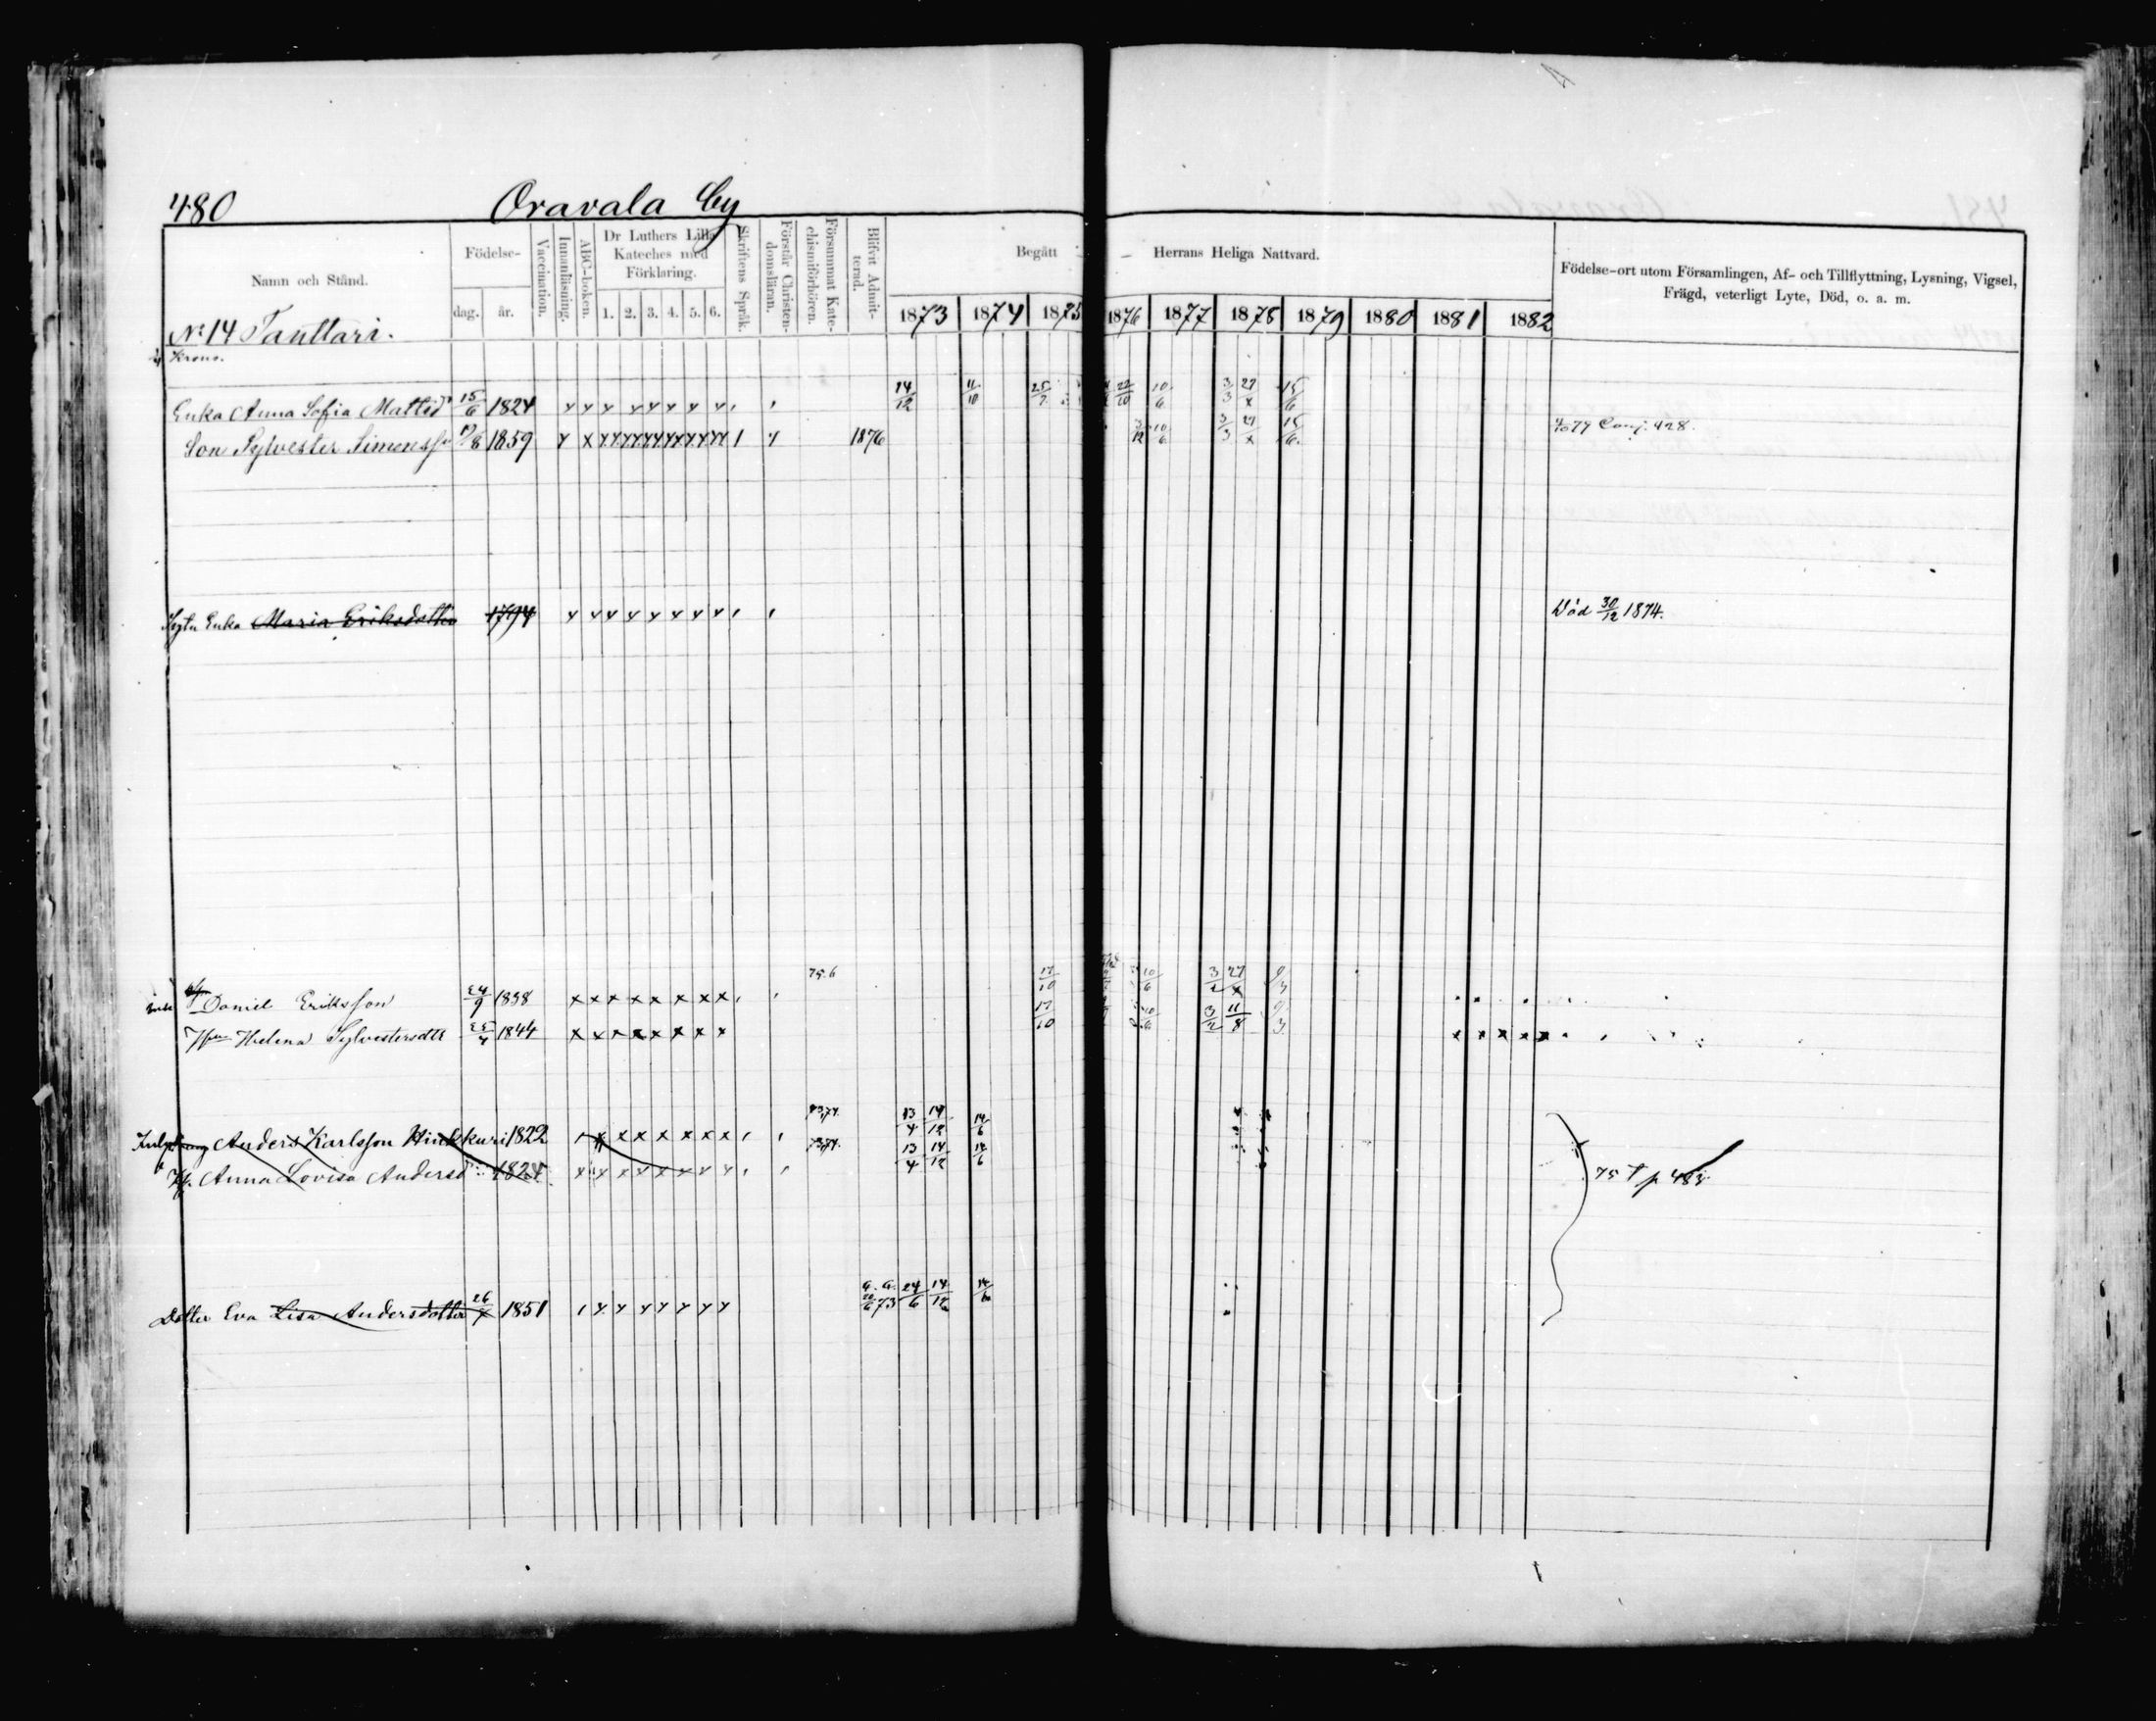 480 Oravala by
Namn och Stånd. Födelse- dag. år. Vaccination. Innanläsning. ABC-boken. Dr Luthers Lilla Kateches med Förklaring. 1. 2. 3. 4. 5. 6. Skriftens Språk. Förstår Christendomsläran. Försummat Katechismiförhören. Blifvit Admitterad. Begått Herrans Heliga Nattvard. 1873 1874 1875 1876 1877 1878 1879 1880 1881 1882 Födelse-ort utom Församlingen, Af- och Tillflyttning, Lysning, Vigsel, Frägd, veterligt Lyte, Död, o. a. m.
No 14 Tanttari.
Krono.
Enka Anna Sofia Mattsd 15/6 1824 14/12 11/10 25/7 22/10 10/6 3/3 27/x 15/6
Son Sylvester Simonsson 19/8 1859 1876 10/6 3/3 27/x 15/6 79 Conj. 428.
Enka Maria Eriksdotter 1794 Död 30/12 1874.
75.6
Daniel Eriksson 24/9 1838 17/10 10/6 3/2 27/x 9/3
Helena Sylvestersdtr 25/4 1844 17/10 10/6 3/2 11/8 9/3
Anders Karlsson Hinkkuri 1822 73,74. 13/4 14/12 14/6
Anna Lovisa Andersd 1824 73,74. 13/4 14/12 14/6 75 T p 483
Dotter Eva Lisa Andersdotter 26/x 1851 73 24/6 14/12 14/6